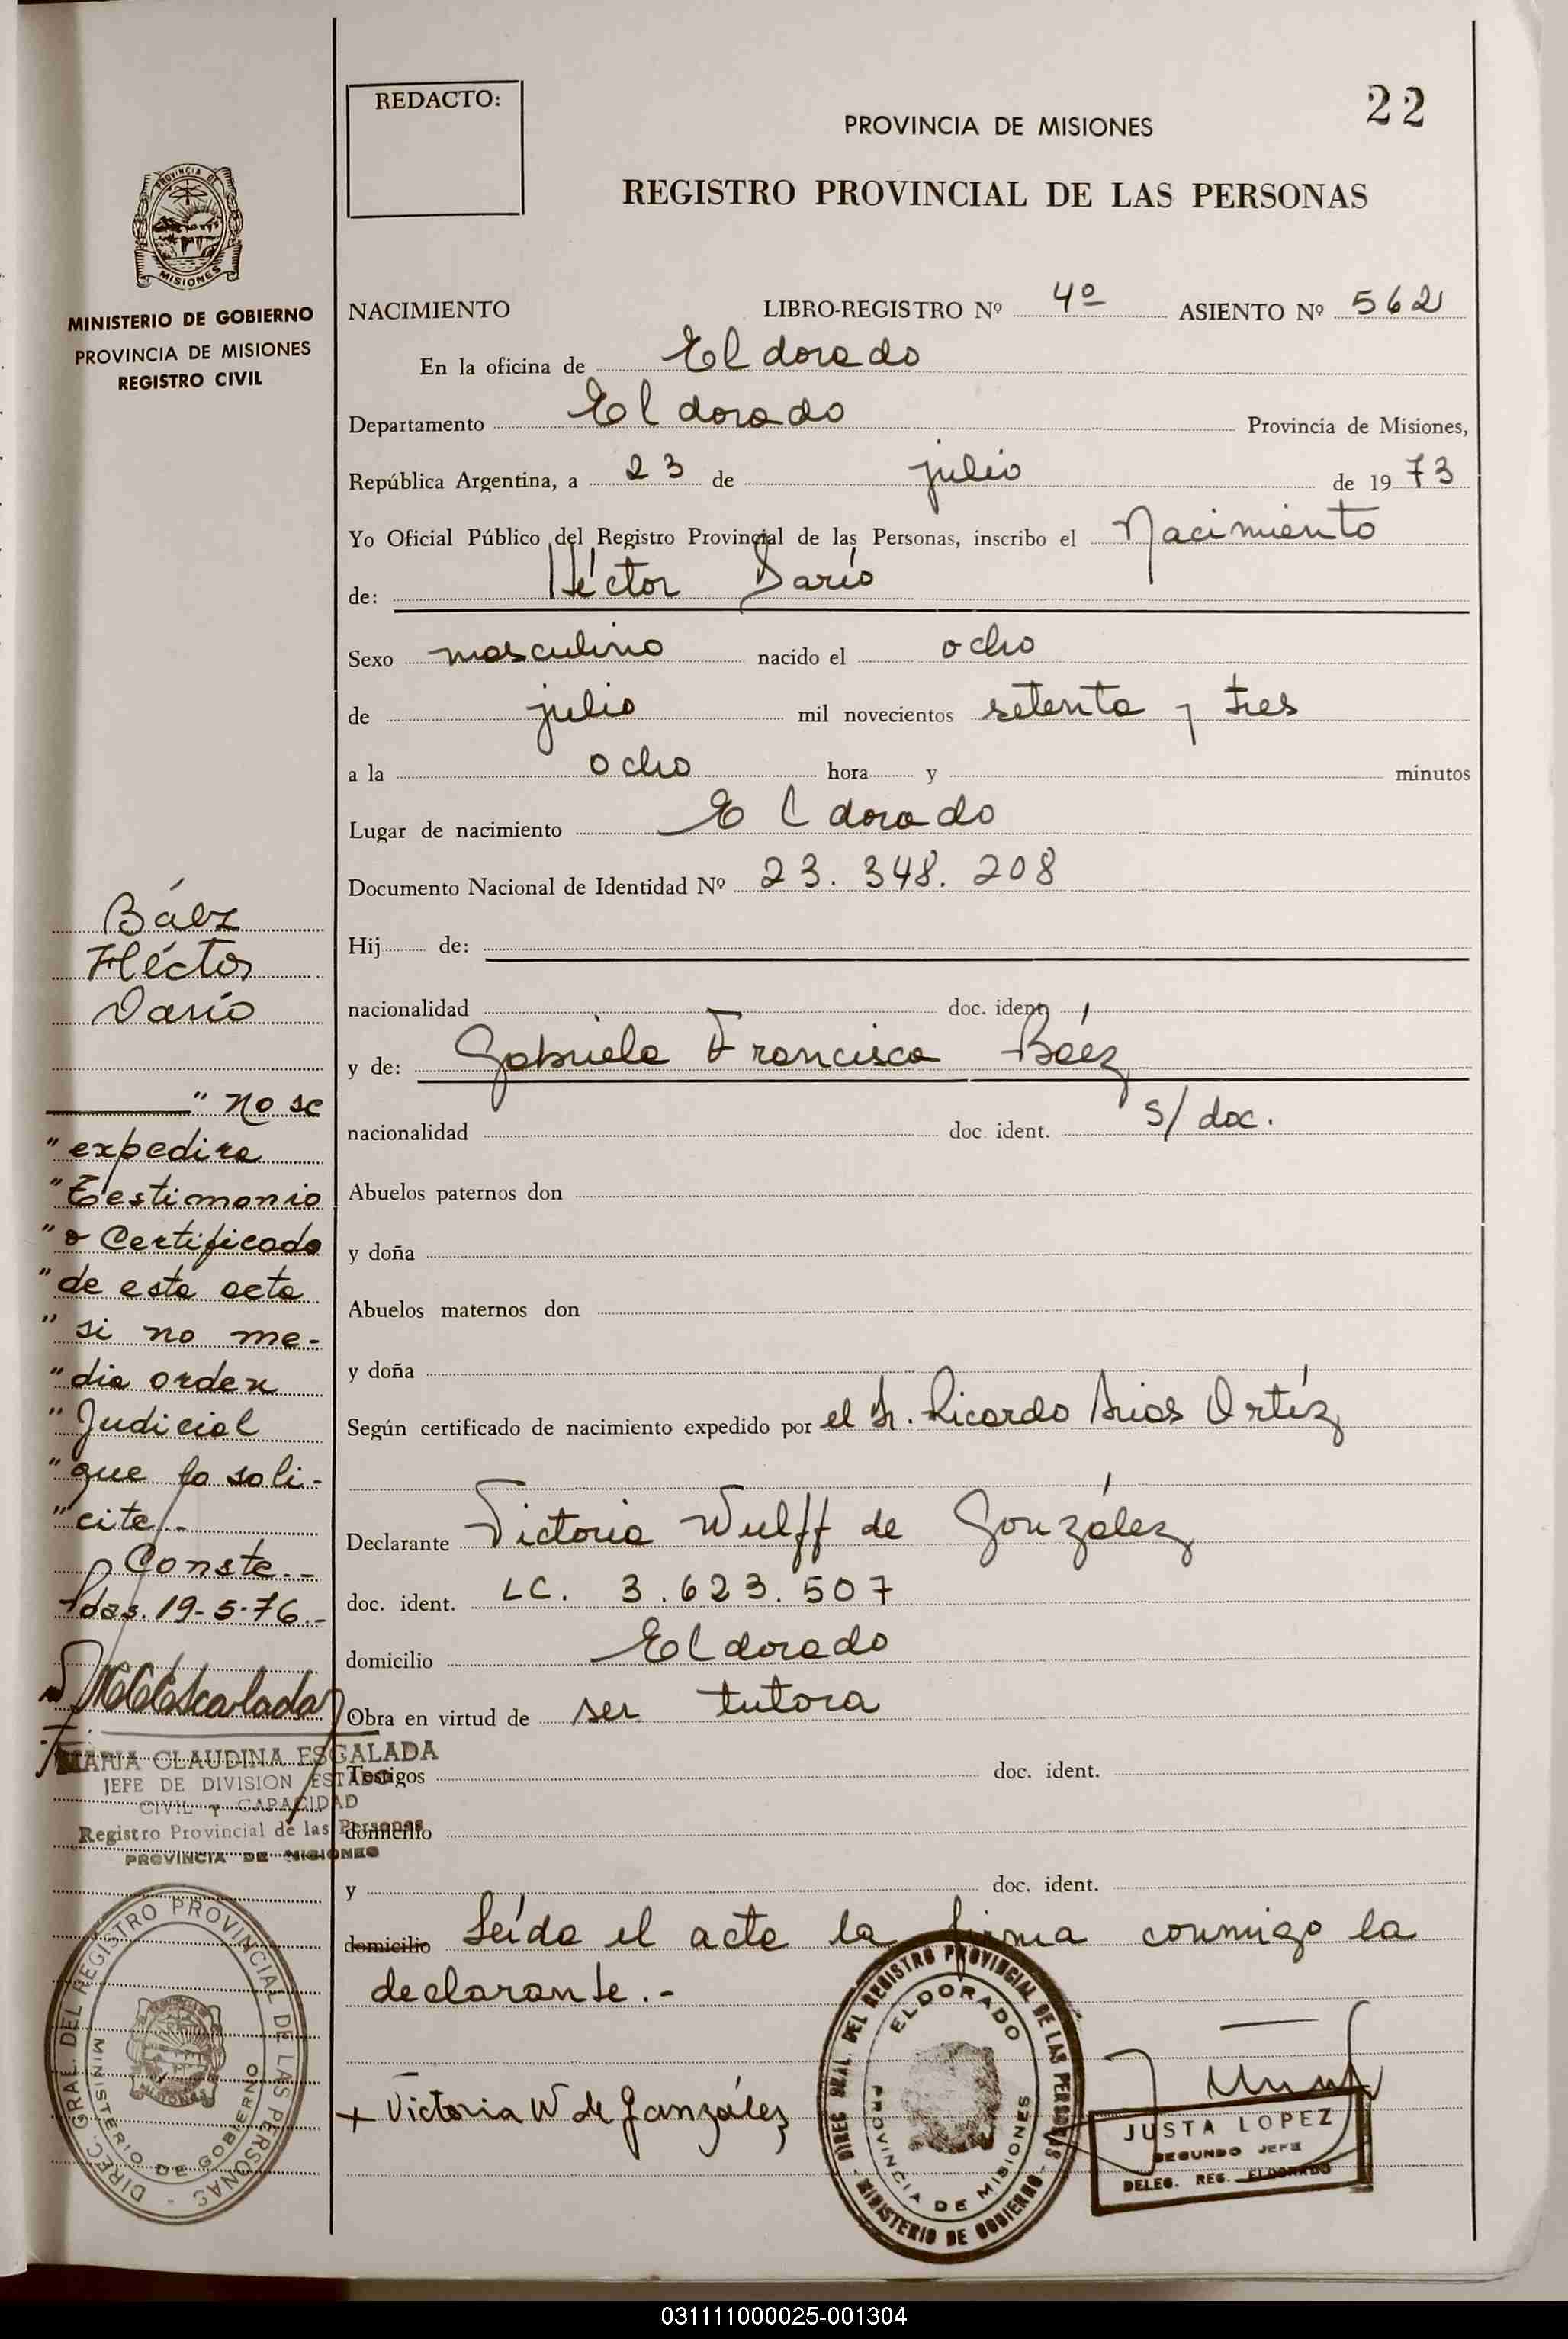 REDACTO:
22
PROVINCIA DE MISIONES
REGISTRO PROVINCIAL DE LAS PERSONAS
PROVINCIA DE
MISIONES
MINISTERIO DE GOBIERNO
PROVINCIA DE MISIONES
REGISTRO CIVIL
NACIMIENTO LIBRO-REGISTRO Nº 4º ASIENTO Nº 562
En la oficina de Eldorado
Departamento Eldorado Provincia de Misiones,
República Argentina, a 23 de julio de 1973
Yo Oficial Público del Registro Provincial de las Personas, inscribo el Nacimiento
de: Héctor Darío
Sexo masculino nacido el ocho
de julio mil novecientos setenta y tres
a la ocho hora y minutos
Lugar de nacimiento Eldorado
Documento Nacional de Identidad Nº 23.348.208
Hij de:
nacionalidad doc. ident.
y de: Gabriela Francisca Báez
nacionalidad doc. ident. s/ doc.
Abuelos paternos don
y doña
Abuelos maternos don
y doña
Según certificado de nacimiento expedido por el Dr. Ricardo Arias Ortíz
Declarante Victoria Wulff de González
doc. ident. LC. 3.623.507
domicilio Eldorado
Obra en virtud de ser tutora
Testigos doc. ident.
domicilio
y doc. ident.
domicilio Leída el acta la firma conmigo la
declarante.-
+ Victoria W de González
DIREC. GRAL. DEL REGISTRO PROVINCIAL DE LAS PERSONAS - MINISTERIO DE GOBIERNO -
ELDORADO
PROVINCIA DE MISIONES
JUSTA LOPEZ
SEGUNDO JEFE
DELEG. REG. ELDORADO
Báez
Héctor
Darío
" No se
" expedira
" Testimonio
" o Certificado
" de esta acta
" si no me-
" dia orden
" Judicial
" que lo soli-
" cite.-
Conste.-
Pdas. 19-5-76.-
MARIA CLAUDINA ESCALADA
JEFE DE DIVISION ESTADO
CIVIL Y CAPACIDAD
Registro Provincial de las Personas
PROVINCIA DE MISIONES
DIREC. GRAL. DEL REGISTRO PROVINCIAL DE LAS PERSONAS -
MINISTERIO DE GOBIERNO
MISIONES
031111000025-001304